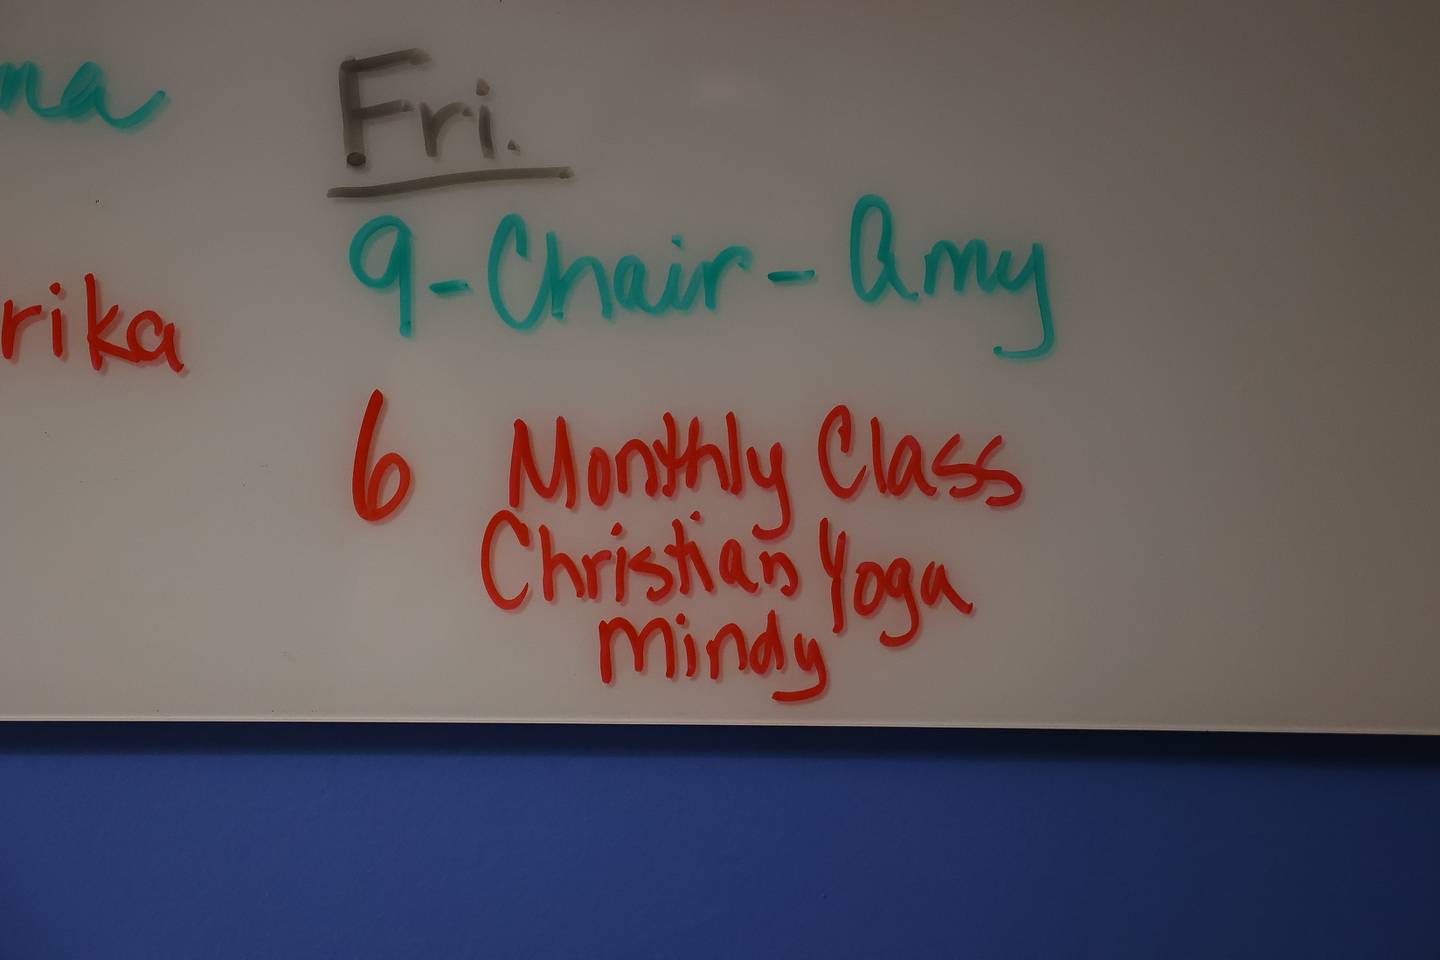 na
rika
Fri.
9-Chair-Amy
6 Monthly Class
Christian Yoga
Mindy